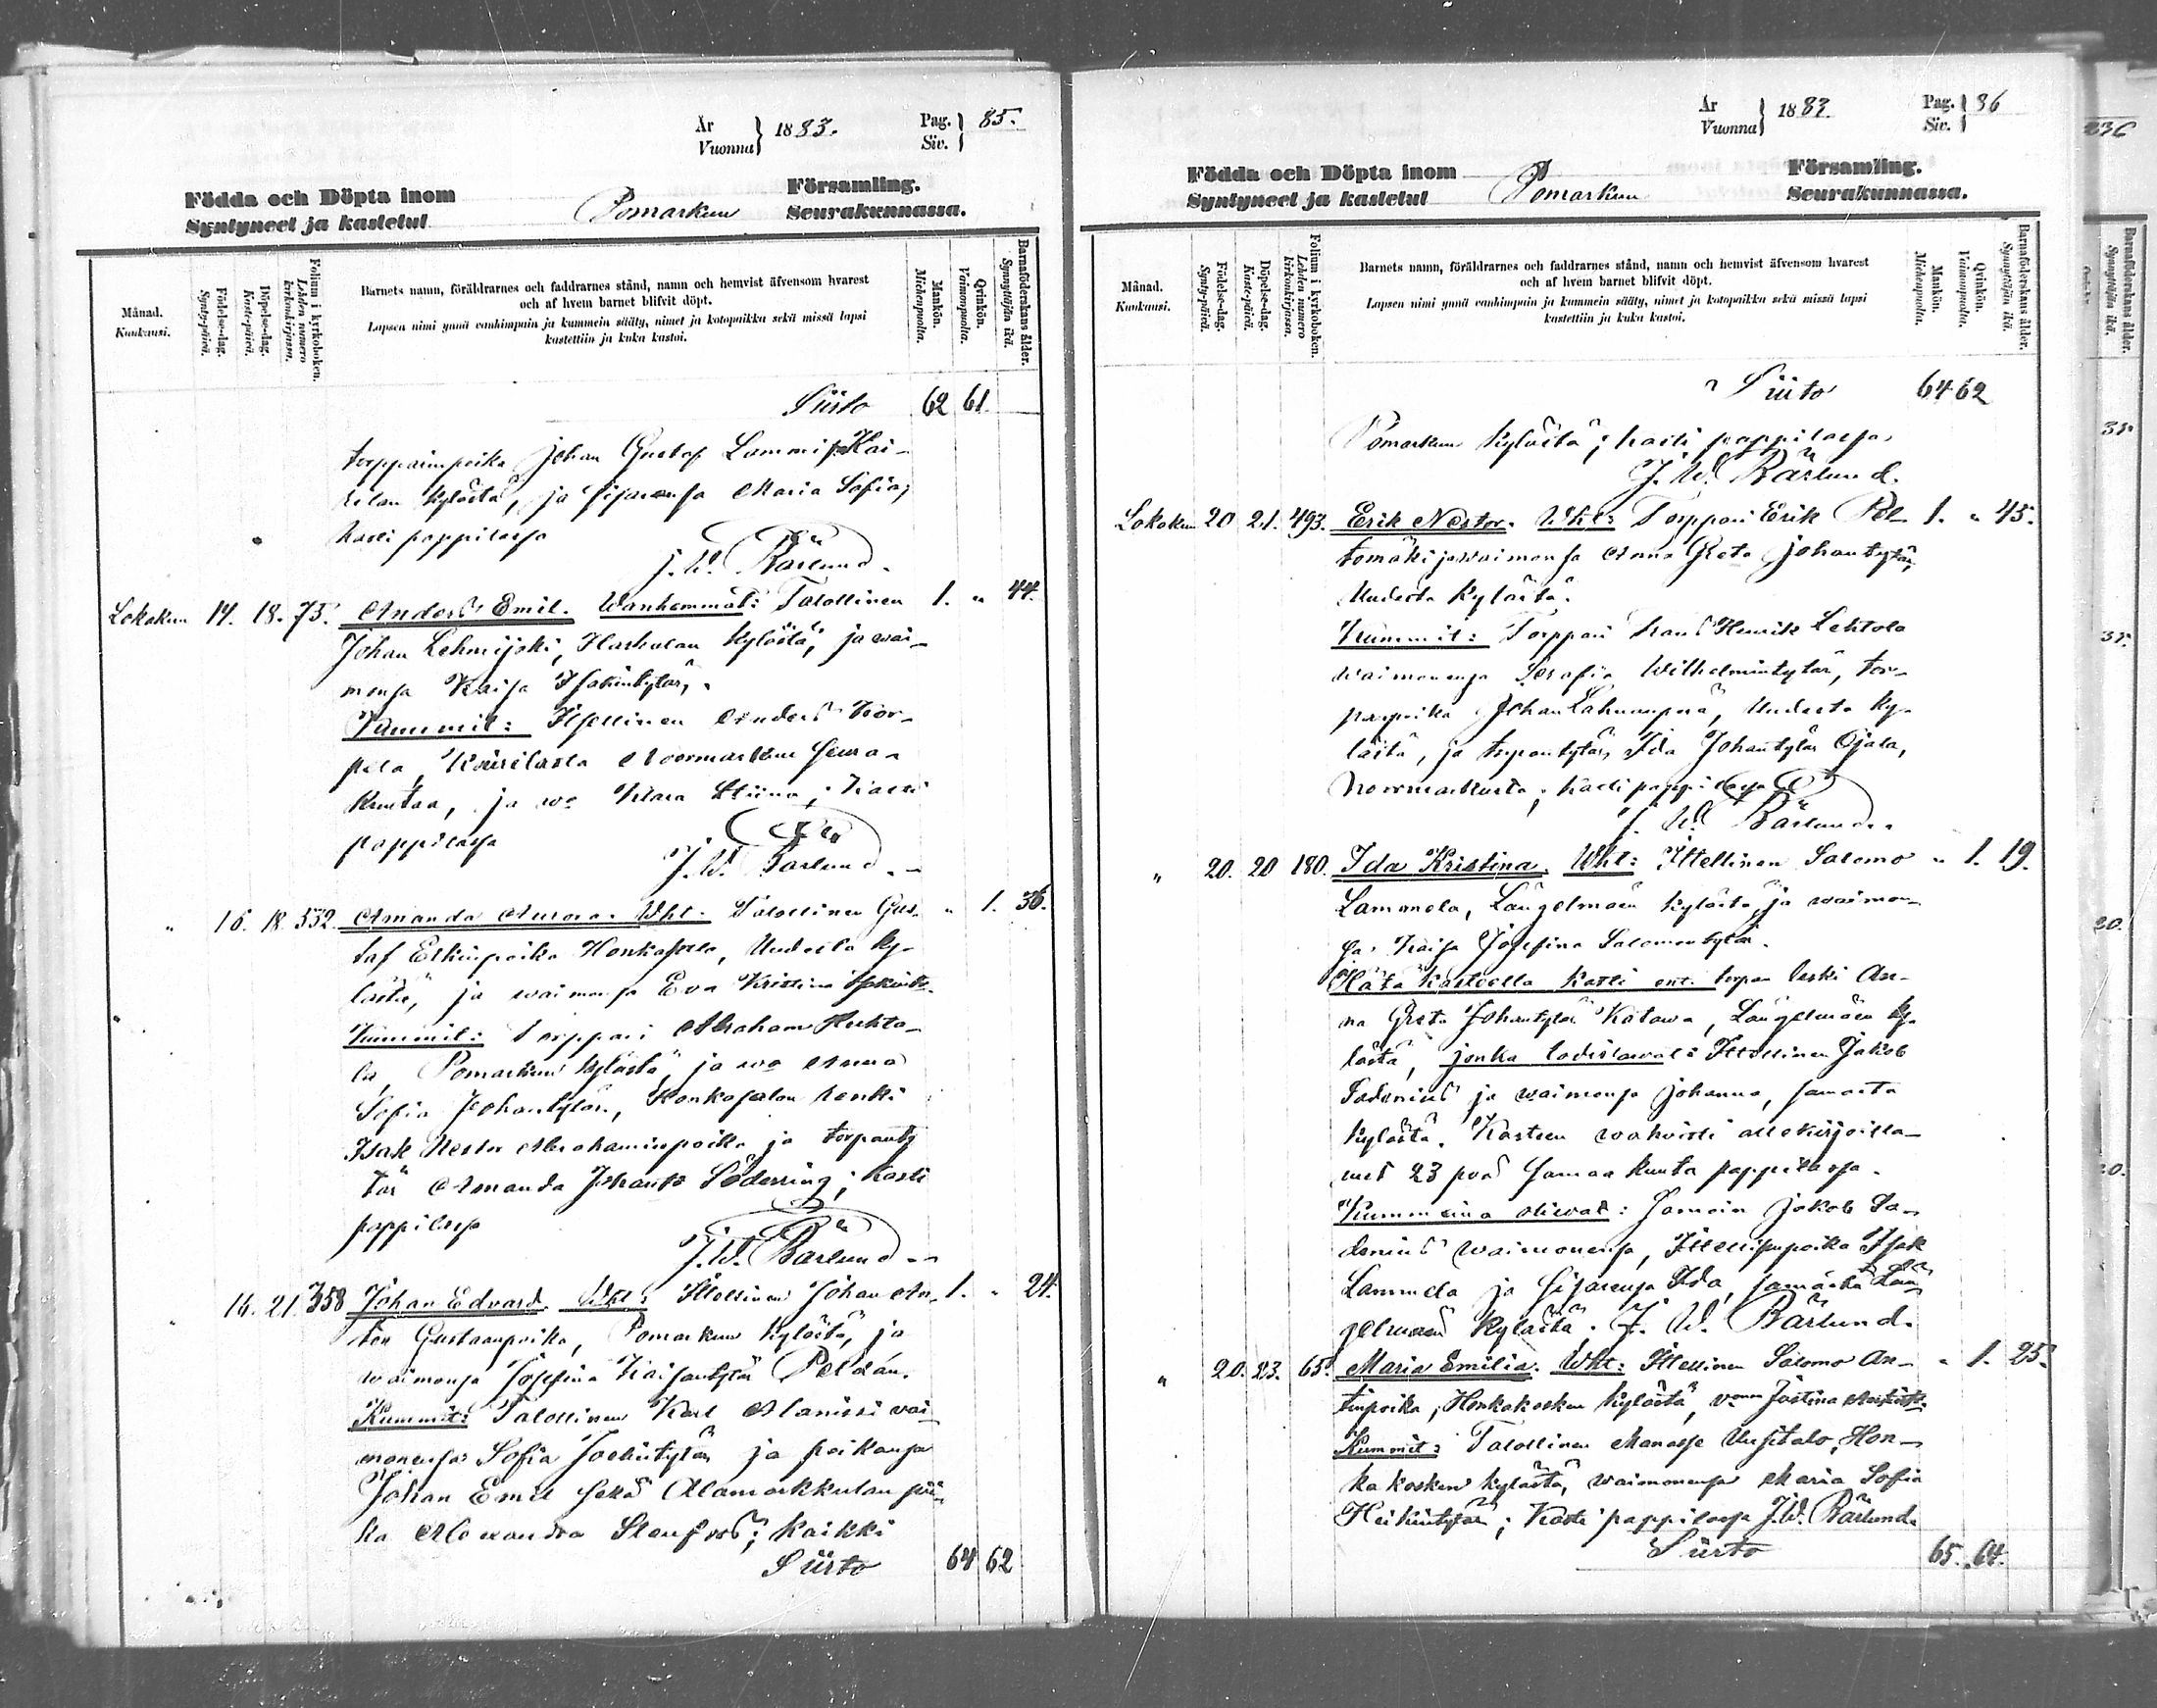 År
Vuonna } 1883.
Pag.
Siv. } 85.
Födda och Döpta inom
Syntyneet ja kastetut
Pomarkun
Församling.
Seurakunnassa.
Månad.
Kuukausi.
Födelse-dag.
Synty-päivä.
Döpelse-dag.
Kaste-päivä.
Folium i kyrkoboken.
Lehden numero kirkonkirjassa.
Barnets namn, föräldrarnes och faddrarnes stånd, namn och hemvist äfvensom hvarest
och af hvem barnet blifvit döpt.
Lapsen nimi ynnä vanhimpain ja kummein sääty, nimet ja kotopaikka sekä missä lapsi
kastettiin ja kuka kastoi.
Mankön.
Miehenpuolta.
Qvinkön.
Vaimonpuolta.
Barnaföderskans ålder.
Synnyttäjän ikä.
Siirto 62 61
torpparinpoika Johan Gustaf Lammi Kai-
rilan kylästä, ja sisarensa Maria Sofia;
kasti pappilassa
J. W. Bärlund.
Lokakuu 14. 18. 75. Anders Emil. Wanhemmat: Talollinen 1. " 44.
Johan Lehmijoki, Harhalan kylästä, ja wai-
monsa Kaisa Isakintytär.
Kummit: Itsellinen Anders Kor-
pela, Noormarkun seura-
kuntaa, ja wo Klara Stiina; kasti
pappilassa
J. W. Bärlund.
" 16. 18. 552. Amanda Aurora. Wht. Talollinen Gus- " 1. 36.
taf Erkinpoika Honkasalo, Uudesta ky-
lästä, ja waimonsa Eva Kristina
Kummit: Torppari Abraham Huhta-
la, Pomarkun kylästä, ja wo Anna
Sofia Johantytär, Honkasalon renki
Isak Nestor Abrahaminpoika ja torpanty
tär Amanda Johanna Söderring; kasti
pappilassa
J. W. Bärlund
16. 21. 358 Johan Edvard. Wht: Itsellinen Johan An- 1. " 24.
ton Gustaanpoika, Pomarkun kylästä, ja
waimonsa Josefina Kaisantytär Peldán.
Kummit: Talollinen Karl Alanissi wai-
monensa Sofia Joelintytär ja poikansa
Johan Emil sekä Alamarkkulan pii-
ka Alexandra Stenfors; kaikki
Siirto 64 62
År
Vuonna } 1883.
Pag.
Siv. } 86
Födda och Döpta inom
Syntyneet ja kastetut
Pomarkun
Församling.
Seurakunnassa.
Månad.
Kuukausi.
Födelse-dag.
Synty-päivä.
Döpelse-dag.
Kaste-päivä.
Folium i kyrkoboken.
Lehden numero kirkonkirjassa.
Barnets namn, föräldrarnes och faddrarnes stånd, namn och hemvist äfvensom hvarest
och af hvem barnet blifvit döpt.
Lapsen nimi ynnä vanhimpain ja kummein sääty, nimet ja kotopaikka sekä missä lapsi
kastettiin ja kuka kastoi.
Mankön.
Miehenpuolta.
Qvinkön.
Vaimonpuolta.
Barnaföderskans ålder.
Synnyttäjän ikä.
Siirto 64 62
Pomarkun kylästä; kasti pappilassa
J. W. Bärlund.
Lokakuu 20 21. 493. Erik Nestor. Wht: Torppari Erik Pel- 1. " 45.
tomäki ja waimonsa Anna Greta Johantytär,
Uudesta kylästä.
Kummit: Torppari Frans Henrik Lehtola
waimonensa Serafia Wilhelmintytär, tor-
parpoika Johan Lahnanperä, Uudesta ky-
lästä, ja torpantytär Ida Johantytär Ojala,
Noormarkusta; kasti pappilassa
J. W. Bärlund.
" 20. 20 180. Ida Kristina. Wht: Itsellinen Salomo " 1. 19.
Lammela, Längelmäen kylästä, ja waimon-
sa Kaisa Josefina Salomontytär.
Hätä kasteella kasti ent. torpan leski An-
na Greta Johantytär Katawa, Längelmäen ky-
lästä, jonka todistawat: Itsellinen Jakob
Sadenius ja waimonsa Johanna, samasta
kylästä. Kasteen wahvisti allekirjoitta-
nut 23 pvä samaa kuuta pappilassa.
Kummeina oliwat: Samoin Jakob Sa-
denius waimonensa, Itsellispoika Isak
Lammela ja sisarensa Ida, samasta Län-
gelmäen kylästä. J. W. Bärlund.
" 20. 23. 65. Maria Emilia. Wht: Itsellinen Salomo An- " 1. 25.
tinpoika, Honkakosken kylästä, Justina
Kummit: Talollinen Manasse Uusitalo, Hon-
kakosken kylästä, waimonensa Maria Sofia
Heikintytär; kasti pappilassa J. W. Bärlund.
Siirto 65. 64.